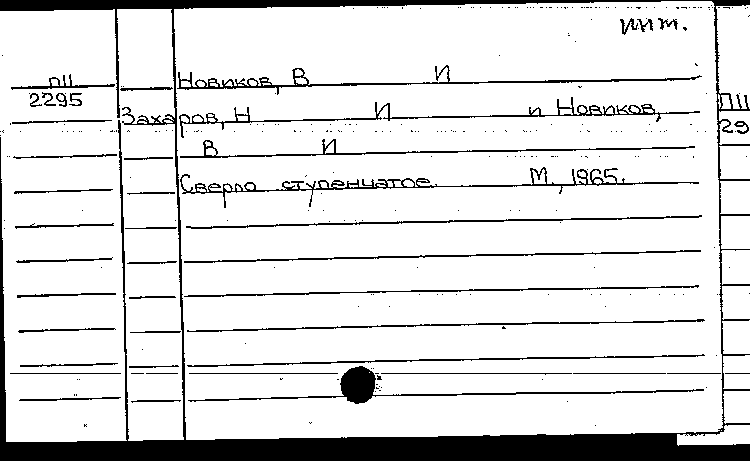 инт.
Новиков, В И
ПII
2295
Захаров, Н И и Новиков,
В И
Сверло ступенчатое. М., 1965.
ПII
29